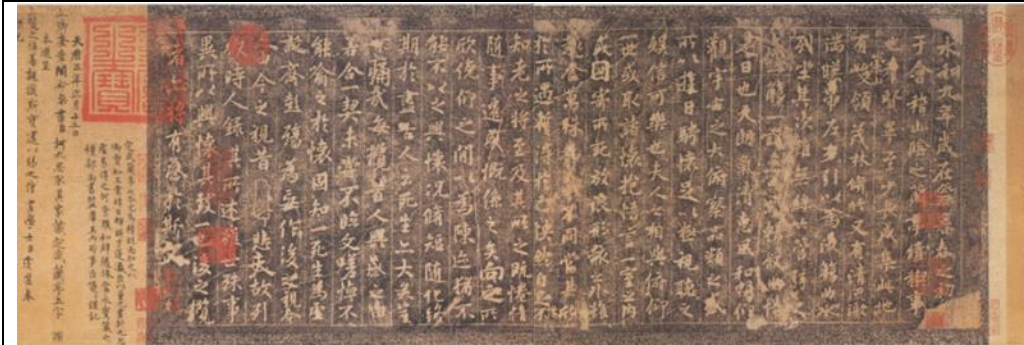 永和九年歲在癸丑暮春之初
于會稽山陰之蘭亭脩稧事
也羣賢畢至少長咸集此地
有峻領茂林脩竹又有清流激
湍暎帶左右引以為流觴曲水
列坐其次雖無絲竹管弦之
盛一觴一詠亦足以暢敘幽情
是日也天朗氣清惠風和暢仰
觀宇宙之大俯察品類之盛
所以遊目騁懷足以極視聽之
娛信可樂也夫人之相與俯仰
一世或取諸懷抱悟言一室之內
或因寄所託放浪形骸之外雖
趣舍萬殊靜躁不同當其欣
於所遇暫得於己怏然自足不
知老之將至及其所之既惓情
隨事遷感慨係之矣向之所
欣俛仰之閒以為陳迹猶不
能不以之興懷況脩短隨化終
期於盡古人云死生亦大矣豈
不痛哉每攬昔人興感之由
若合一契未嘗不臨文嗟悼不
能喻之於懷固知一死生為虛
誕齊彭殤為妄作後之視今
亦由今之視昔悲夫故列
敘時人錄其所述雖世殊事
異所以興懷其致一也後之攬
者亦將有感於斯文
天曆三年正月十二日
上御奎章閣命參書臣柯九思取其家藏定武蘭亭五字損
本進呈
上覽之稱善親識斯寶還以賜之侍書學士臣虞集奉
勅記